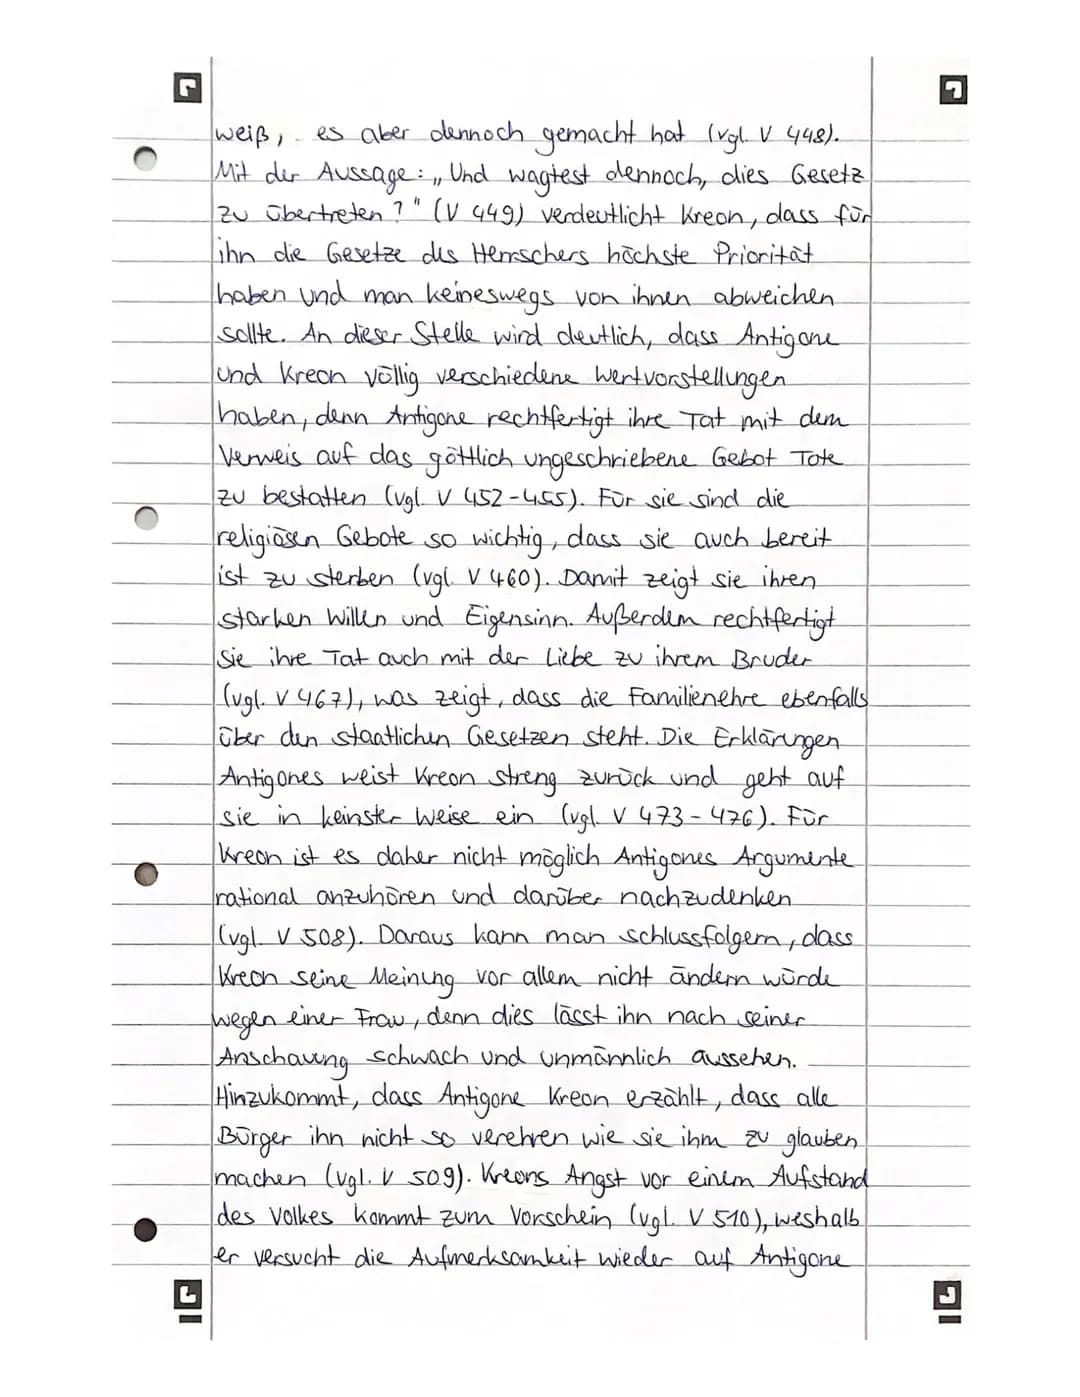 weiß, es aber dennoch gemacht hat (vgl. V 448).
Mit der Aussage: „Und wagtest dennoch, dies Gesetz
zu übertreten?" (V 449) verdeutlicht Kreon, dass für
ihn die Gesetze des Herrschers höchste Priorität
haben und man keineswegs von ihnen abweichen
sollte. An dieser Stelle wird deutlich, dass Antigone
und Kreon völlig verschiedene Wertvorstellungen
haben, denn Antigone rechtfertigt ihre Tat mit dem
Verweis auf das göttlich ungeschriebene Gebot Tote
zu bestatten (vgl. V 452-455). Für sie sind die
religiösen Gebote so wichtig, dass sie auch bereit
ist zu sterben (vgl. V 460). Damit zeigt sie ihren
starken Willen und Eigensinn. Außerdem rechtfertigt
Sie ihre Tat auch mit der Liebe zu ihrem Bruder
(vgl. V 467), was zeigt, dass die Familienehre ebenfalls
über den staatlichen Gesetzen steht. Die Erklärungen
Antigones weist Kreon streng zurück und geht auf
sie in keinster Weise ein (vgl. V 473-476). Für
Kreon ist es daher nicht möglich Antigones Argumente
rational anzuhören und darüber nachzudenken
(vgl. V 508). Daraus kann man schlussfolgern, dass
Kreon seine Meinung vor allem nicht ändern würde
wegen einer Frau, denn dies lässt ihn nach seiner
Anschauung schwach und unmännlich aussehen.
Hinzukommt, dass Antigone Kreon erzählt, dass alle
Bürger ihn nicht so verehren wie sie ihm zu glauben
machen (vgl. V 509). Kreons Angst vor einem Aufstand
des Volkes kommt zum Vorschein (vgl. V 510), weshalb
er versucht die Aufmerksamkeit wieder auf Antigone